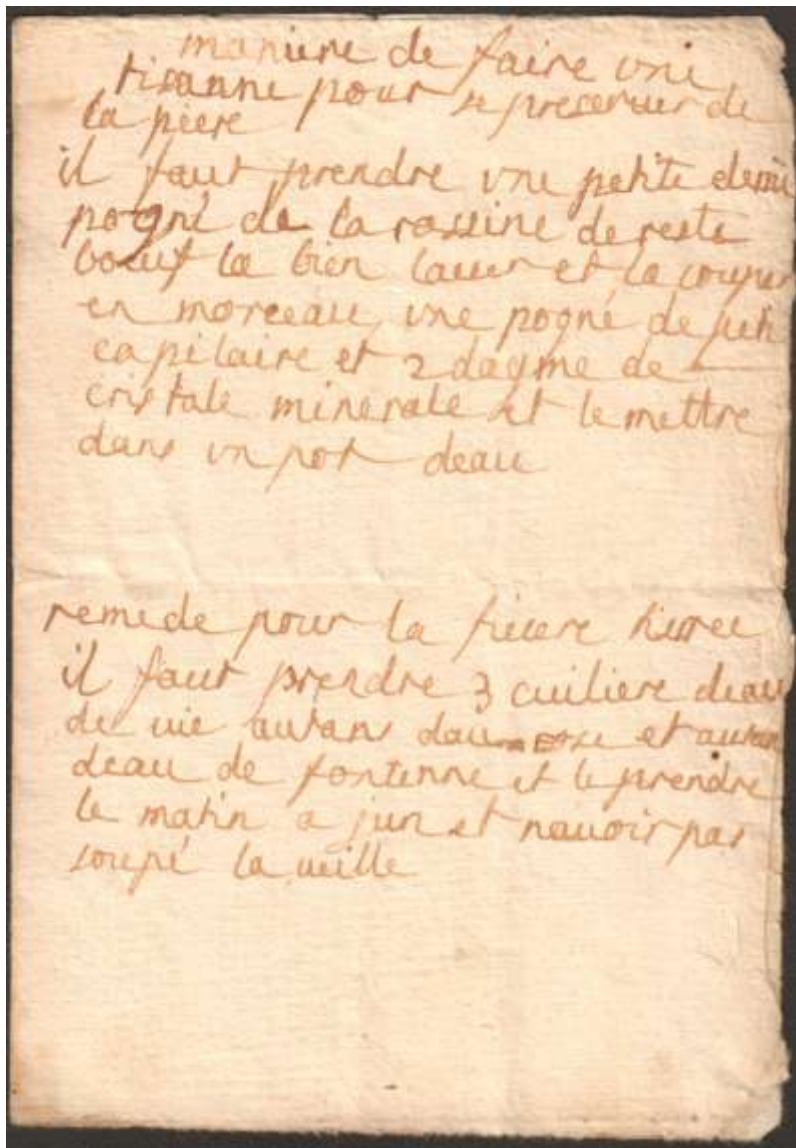 maniere de faire vne
tisanne pour se preseruer de
la piere
il faut prendre vne petite demi
pogné de la rassine de reste
boeuf la bien lauer et la couper
en morceau vne pogné de petit
capilaire et 2 dagme de
cristale minerale et le mettre
dans vn pot deau
remede pour la fieuere
il faut prendre 3 cuiliere deau
de uie autans dau rose et autan
deau de fontenne et le prendre
le matin a jun et nauoir pas
soupé la ueille